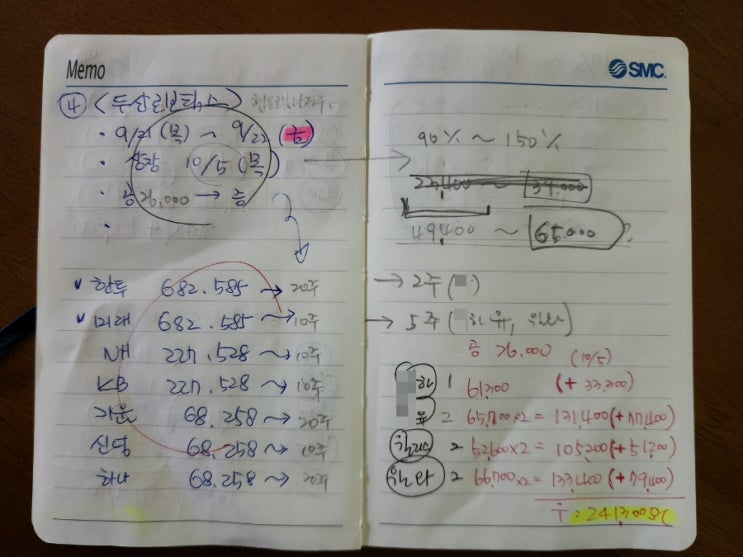 Memo
④ <두산로보틱스>
· 9/21 (목) ~ 9/22 (금)
· 상장 10/5 (목)
· 공 26,000 → 중
·
✓ 한투 682.585 → 20주
✓ 미래 682.585 → 10주
NH 227.528 → 10주
KB 227.528 → 10주
키움 68.258 → 20주
신영 68.258 → 10주
하나 68.258 → 20주
SMC
90% ~ 150%
23,400 ~ 39,000
49,400 ~ 65,000
→ 2주 (
→ 5주 (
공 26,000 (10/5)
하 1 61,300 (+ 33,300)
유 2 65,700×2 = 131,400 (+77,400)
2 52,600×2 = 105,200 (+51,200)
2 66,700×2 = 133,400 (+79,400)
T : 241,300원